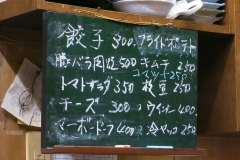 餃子 300. フライドポテト
豚バラ 500 キムチ 250
コマツナ 250
トマトサラダ 350 枝豆 250
チーズ 300 ウインナー 400
マーボードーフ 400 冷ヤッコ 250